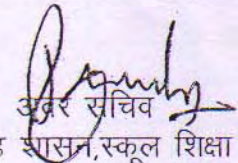 अवर सचिव
शासन,स्कूल शिक्षा